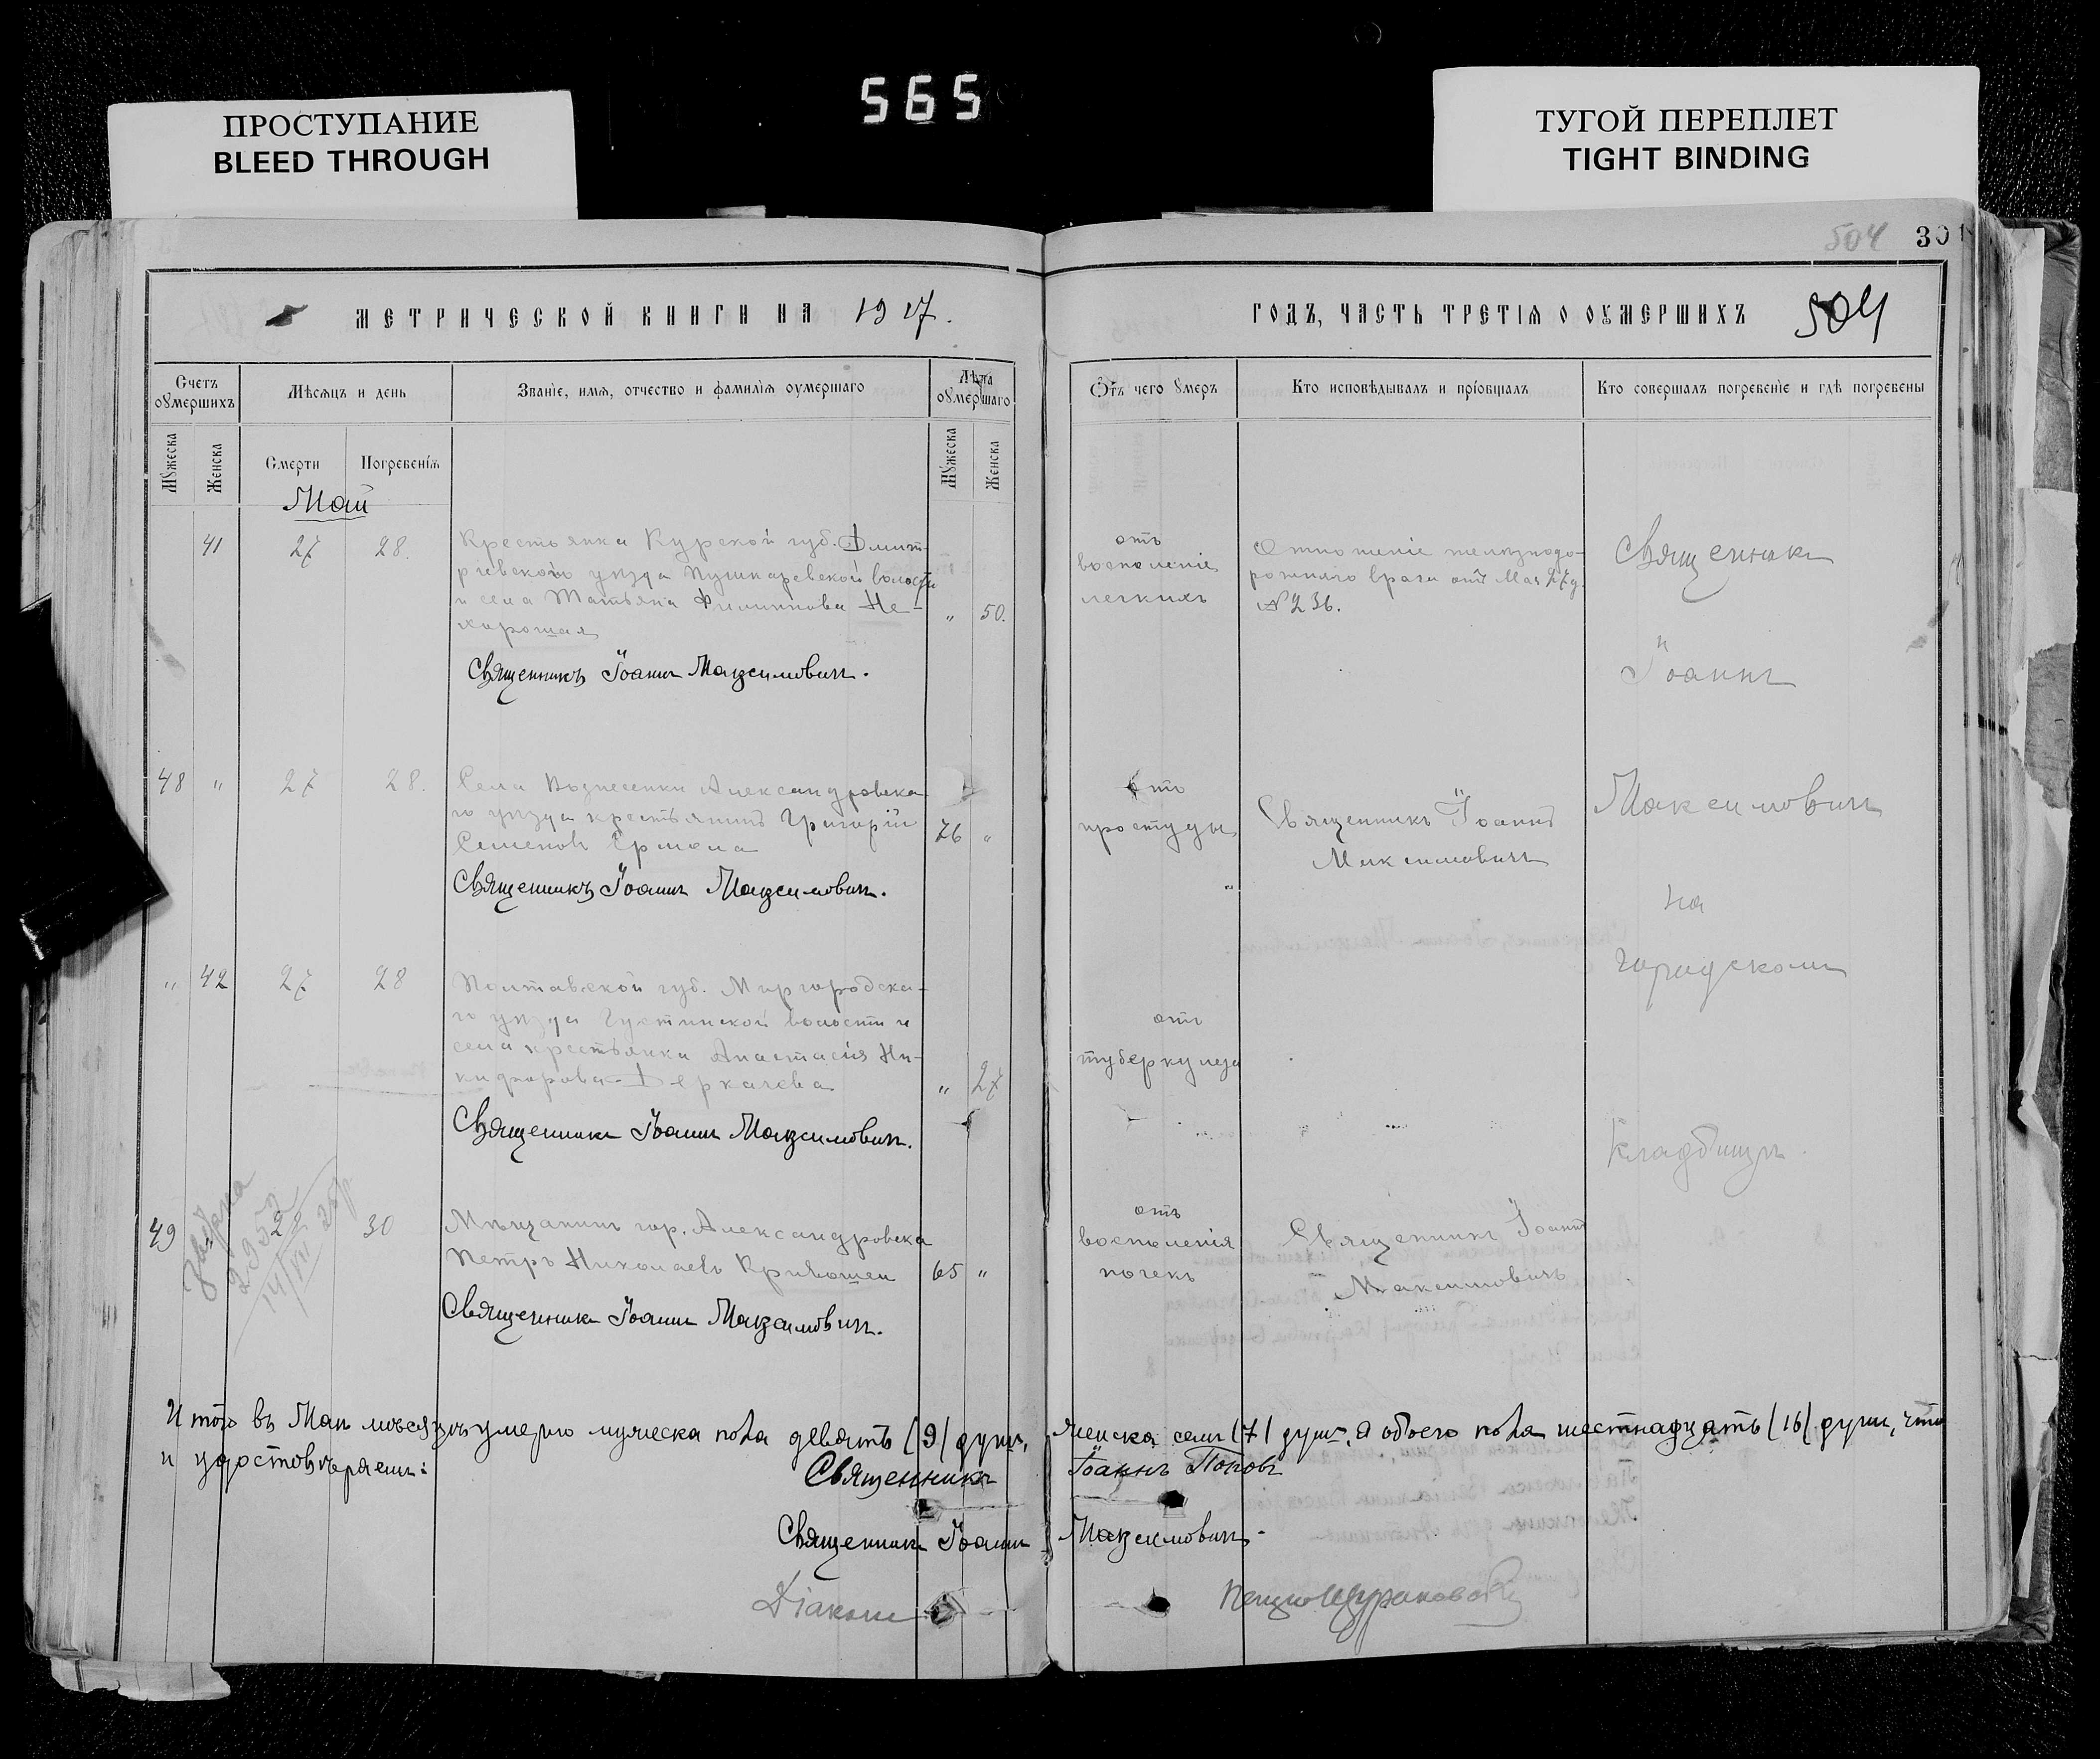 565
ПРОСТУПАНИЕ
BLEED THROUGH
ТУГОЙ ПЕРЕПЛЕТ
TIGHT BINDING
504 301
МЕТРИЧЕСКОЙ КНИГИ НА 1917.
ГОДЪ, ЧАСТЬ ТРЕТІѦ О ОУМЕРШИХЪ 504
Счетъ оумершихъ
Мѣсѧцъ и день
Званіе, имѧ, отчество и фамиліѧ оумершаго
Лѣта оумершаго
Отъ чего умеръ
Кто исповѣдывалъ и пріобщалъ
Кто совершалъ погребеніе и гдѣ погребены
Мужеска
Женска
Смерти
Погребеніѧ
Мужеска
Женска
Май
41 27 28.
Крестьянка Курской губ. Дмит-
ріевского уѣзда Пушкаревской волости
и села Татьяна Филиппова Не-
хорошая
" 50.
Священникъ Іоаннъ Максимовичъ.
отъ
воспаленіе
легкихъ
Отношеніе желѣзнодо-
рожнаго врача отъ Мая 27 д.
№ 236.
Священникъ
Іоаннъ
48 " 27 28.
Села Вознесенки Александровска-
го уѣзда крестьянинъ Григорій
Семеновъ Ермола
76 "
Священникъ Іоаннъ Максимовичъ.
отъ
простуды
Священникъ Іоаннъ
Максимовичъ
Максимовичъ
на
городскомъ
" 42 27 28
Полтавской губ. Миргородска-
го уѣзда Устинской волости и
села крестьянка Анастасія Ни-
кифорова Деркачева
" 27
Священникъ Іоаннъ Максимовичъ.
отъ
туберкулеза
Кладбищѣ
49 " 30
2952
Мѣщанинъ гор. Александровска
Петръ Николаевъ Кривошеи
65 "
Священникъ Іоаннъ Максимовичъ.
отъ
воспаленія
почекъ
Священникъ Іоаннъ
Максимовичъ
Итого въ Маѣ мѣсяцѣ умерло мужеска пола девять (9) душъ, женска семь (7) душъ, а обоего пола шестнадцать (16) душъ, что
и удостовѣряемъ:
Священникъ Іоаннъ Поповъ
Священникъ Іоаннъ Максимовичъ
Діаконъ